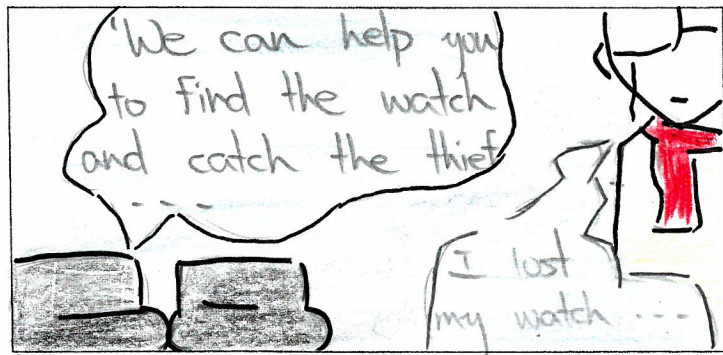 'We can help you
to find the watch
and catch the thief
- - -
I lost
my watch ---